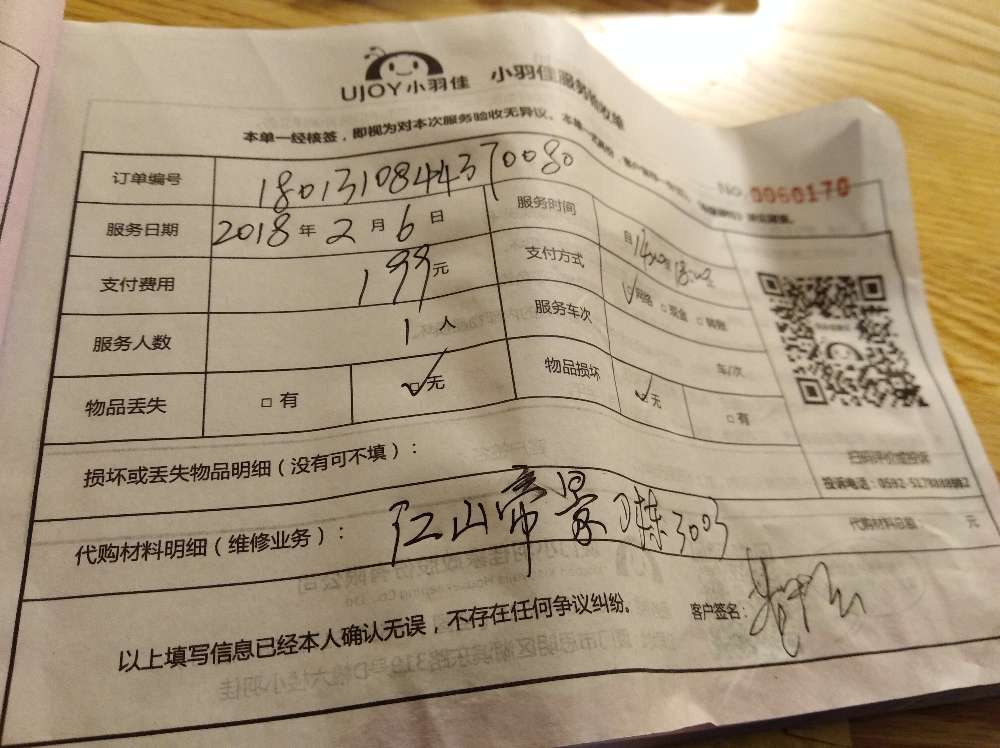 UJOY小羽佳 小羽佳服务验收单
本单一经核签，即视为对本次服务验收无异议。
No. 0060170
订单编号 1801310844370080
服务日期 2018 年 2 月 6 日 服务时间 自
支付费用 199 元 支付方式 网络 □ 现金 □ 转账
服务人数 1 人 服务车次 车/次
物品丢失 □ 有 □ 无 物品损坏 □ 无 □ 有
损坏或丢失物品明细（没有可不填）：
扫码评价或投诉
投诉电话：0592-
代购材料明细（维修业务）： 江山帝景 D栋3003
代购材料总额 元
以上填写信息已经本人确认无误，不存在任何争议纠纷。 客户签名：